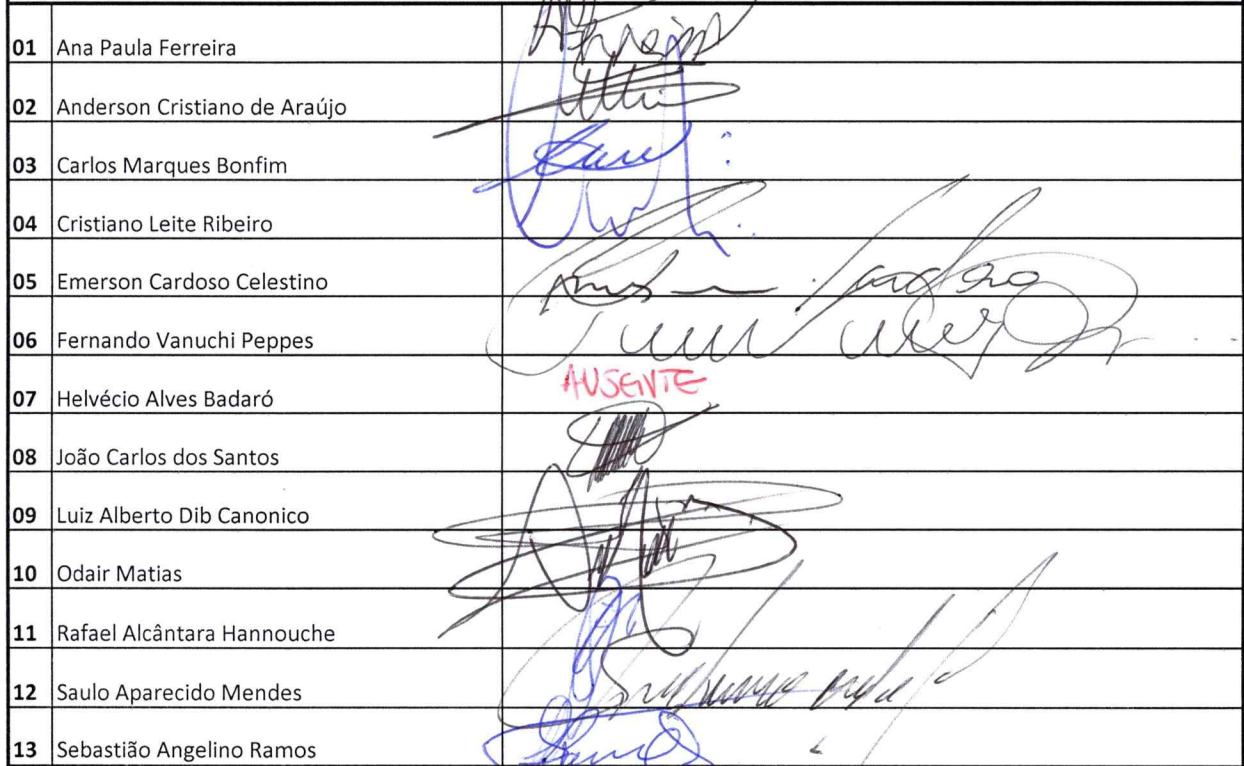 01 Ana Paula Ferreira
02 Anderson Cristiano de Araújo
03 Carlos Marques Bonfim
04 Cristiano Leite Ribeiro
05 Emerson Cardoso Celestino
06 Fernando Vanuchi Peppes
07 Helvécio Alves Badaró AUSENTE
08 João Carlos dos Santos
09 Luiz Alberto Dib Canonico
10 Odair Matias
11 Rafael Alcântara Hannouche
12 Saulo Aparecido Mendes
13 Sebastião Angelino Ramos